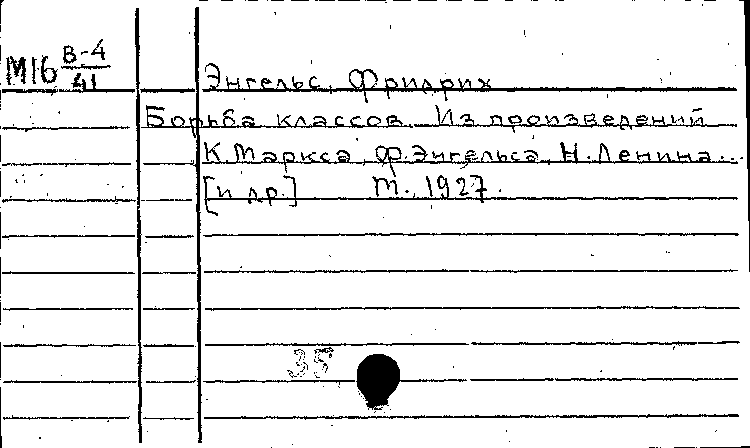 М16 В-4/41
Энгельс, Фридрих
Борьба классов. Из произведений
К. Маркса, Ф. Энгельса, Н. Ленина...
[и др.] Т., 1927.
35